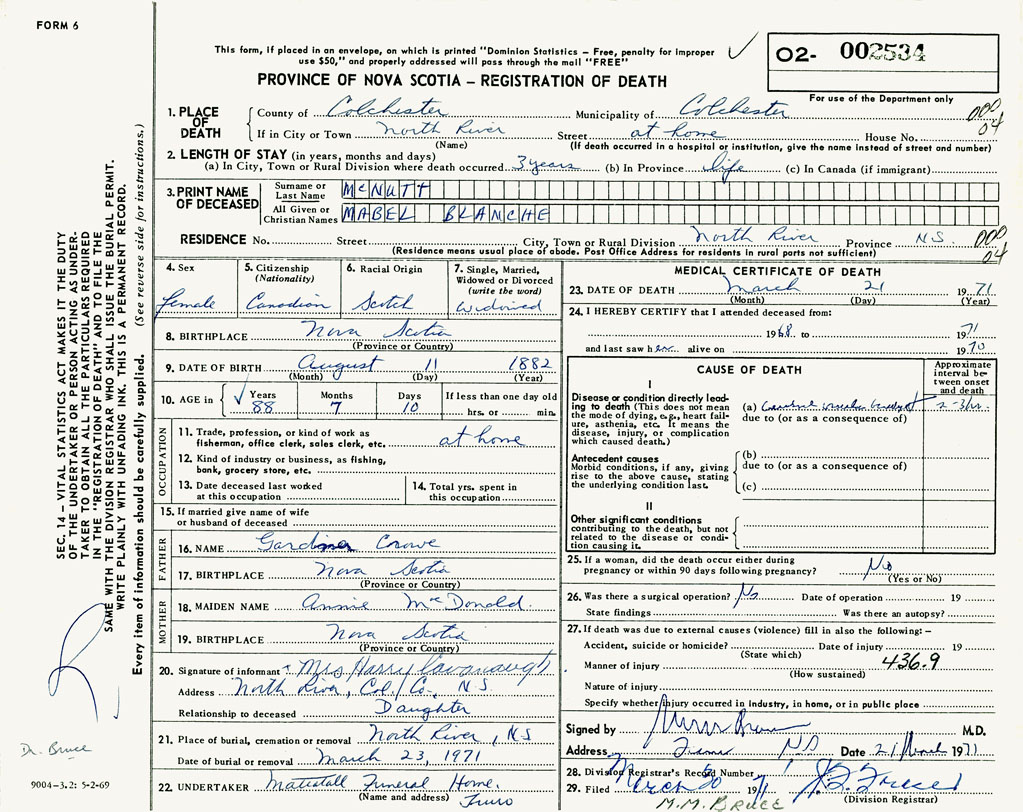 FORM 6
This form, if placed in an envelope, on which is printed "Dominion Statistics – Free, penalty for improper
use $50," and properly addressed will pass through the mail "FREE"
O2- 002534
PROVINCE OF NOVA SCOTIA – REGISTRATION OF DEATH
For use of the Department only
1. PLACE OF DEATH
County of Colchester Municipality of Colchester 000
If in City or Town North River Street at home House No. 04
(Name) (If death occurred in a hospital or institution, give the name instead of street and number)
2. LENGTH OF STAY (in years, months and days)
(a) In City, Town or Rural Division where death occurred 3 years (b) In Province life (c) In Canada (if immigrant)
3. PRINT NAME OF DECEASED
Surname or Last Name McNUTT
All Given or Christian Names MABEL BLANCHE
RESIDENCE No. Street City, Town or Rural Division North River Province N.S. 000
(Residence means usual place of abode. Post Office Address for residents in rural parts not sufficient) 04
4. Sex
female
5. Citizenship
(Nationality)
Canadian
6. Racial Origin
Scotch
7. Single, Married,
Widowed or Divorced
(write the word)
Widowed
8. BIRTHPLACE Nova Scotia
(Province or Country)
9. DATE OF BIRTH August 11 1882
(Month) (Day) (Year)
10. AGE in Years Months Days If less than one day old
88 7 10 hrs. or min.
OCCUPATION
11. Trade, profession, or kind of work as
fisherman, office clerk, sales clerk, etc. at home
12. Kind of industry or business, as fishing,
bank, grocery store, etc.
13. Date deceased last worked
at this occupation
14. Total yrs. spent in
this occupation
15. If married give name of wife
or husband of deceased
FATHER
16. NAME Gardiner Crowe
17. BIRTHPLACE Nova Scotia
(Province or Country)
MOTHER
18. MAIDEN NAME Annie McDonald
19. BIRTHPLACE Nova Scotia
(Province or Country)
20. Signature of informant Mrs Harry Cavanaugh
Address North River, Col. Co., N.S.
Relationship to deceased Daughter
21. Place of burial, cremation or removal North River, N.S
Date of burial or removal March 23, 1971
22. UNDERTAKER Mattatall Funeral Home,
(Name and address) Truro
MEDICAL CERTIFICATE OF DEATH
23. DATE OF DEATH March 21 1971
(Month) (Day) (Year)
24. I HEREBY CERTIFY that I attended deceased from:
1968 to 1971
and last saw her alive on 1970
CAUSE OF DEATH
Approximate
interval be-
tween onset
and death
I
Disease or condition directly lead-
ing to death (This does not mean
the mode of dying, e.g., heart fail-
ure, asthenia, etc. It means the
disease, injury, or complication
which caused death.)
(a) 2-3 hr.
due to (or as a consequence of)
Antecedent causes
Morbid conditions, if any, giving
rise to the above cause, stating
the underlying condition last.
(b)
due to (or as a consequence of)
(c)
II
Other significant conditions
contributing to the death, but not
related to the disease or condi-
tion causing it.
25. If a woman, did the death occur either during
pregnancy or within 90 days following pregnancy? No
(Yes or No)
26. Was there a surgical operation? No Date of operation 19
State findings Was there an autopsy?
27. If death was due to external causes (violence) fill in also the following: –
Accident, suicide or homicide? Date of injury 19
(State which)
Manner of injury 436.9
(How sustained)
Nature of injury
Specify whether injury occurred in industry, in home, or in public place
Signed by M.D.
Address NS Date 21 March 1971
28. Division Registrar's Record Number
29. Filed March 30 1971
(Division Registrar)
M.M. BRUCE
SEC. 14 – VITAL STATISTICS ACT MAKES IT THE DUTY
OF THE UNDERTAKER OR PERSON ACTING AS UNDER-
TAKER TO OBTAIN ALL THE PARTICULARS REQUIRED
IN THE "REGISTRATION OF DEATH" AND TO FILE THE
SAME WITH THE DIVISION REGISTRAR WHO SHALL ISSUE THE BURIAL PERMIT.
WRITE PLAINLY WITH UNFADING INK. THIS IS A PERMANENT RECORD.
Every item of information should be carefully supplied. (See reverse side for instructions.)
Dr. Bruce
9004-3.2: 5-2-69